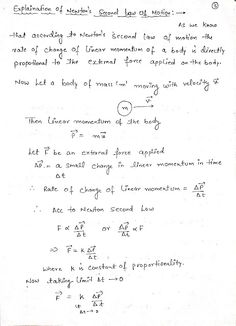 Explaination of Newton's Second Law Of Motion:→
①
As we know
that according to Newton's Second Law of motion the
rate of change of linear momentum of a body is directly
proportional to the external force applied on the body.
Now Let a body of mass 'm' moving with velocity v⃗
m v⃗
Then linear momentum of the body
P⃗ = mv⃗
Let F⃗ be an external force applied
ΔP⃗ = a small change in linear momentum in time
Δt
∴ Rate of change of linear momentum = ΔP⃗/Δt
∴ Acc to Newton Second Law
F ∝ ΔP⃗/Δt or ΔP⃗/Δt ∝ F
⇒ F⃗ = K ΔP⃗/Δt
where K is constant of proportionality.
Now taking limit Δt → 0
F⃗ = K lt Δt→0 ΔP⃗/Δt